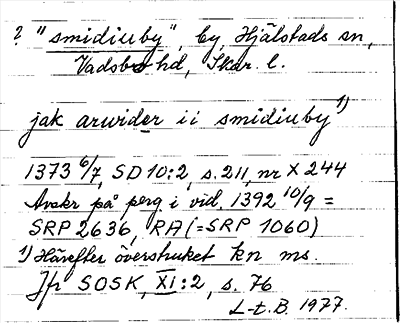 ? "smidiuby", by, Hjälstads sn,
Vadsbo hd, Skar. l.
jak arwider ii smidiuby 1)
1373 6/7, SD 10:2, s. 211, nr X 244
Avskr på perg i vid. 1392 10/9 =
SRP 2636, RA (=SRP 1060)
1) Härefter överstruket kn ms.
Jfr SOSK, XI:2, s. 76
L-t. B. 1977.